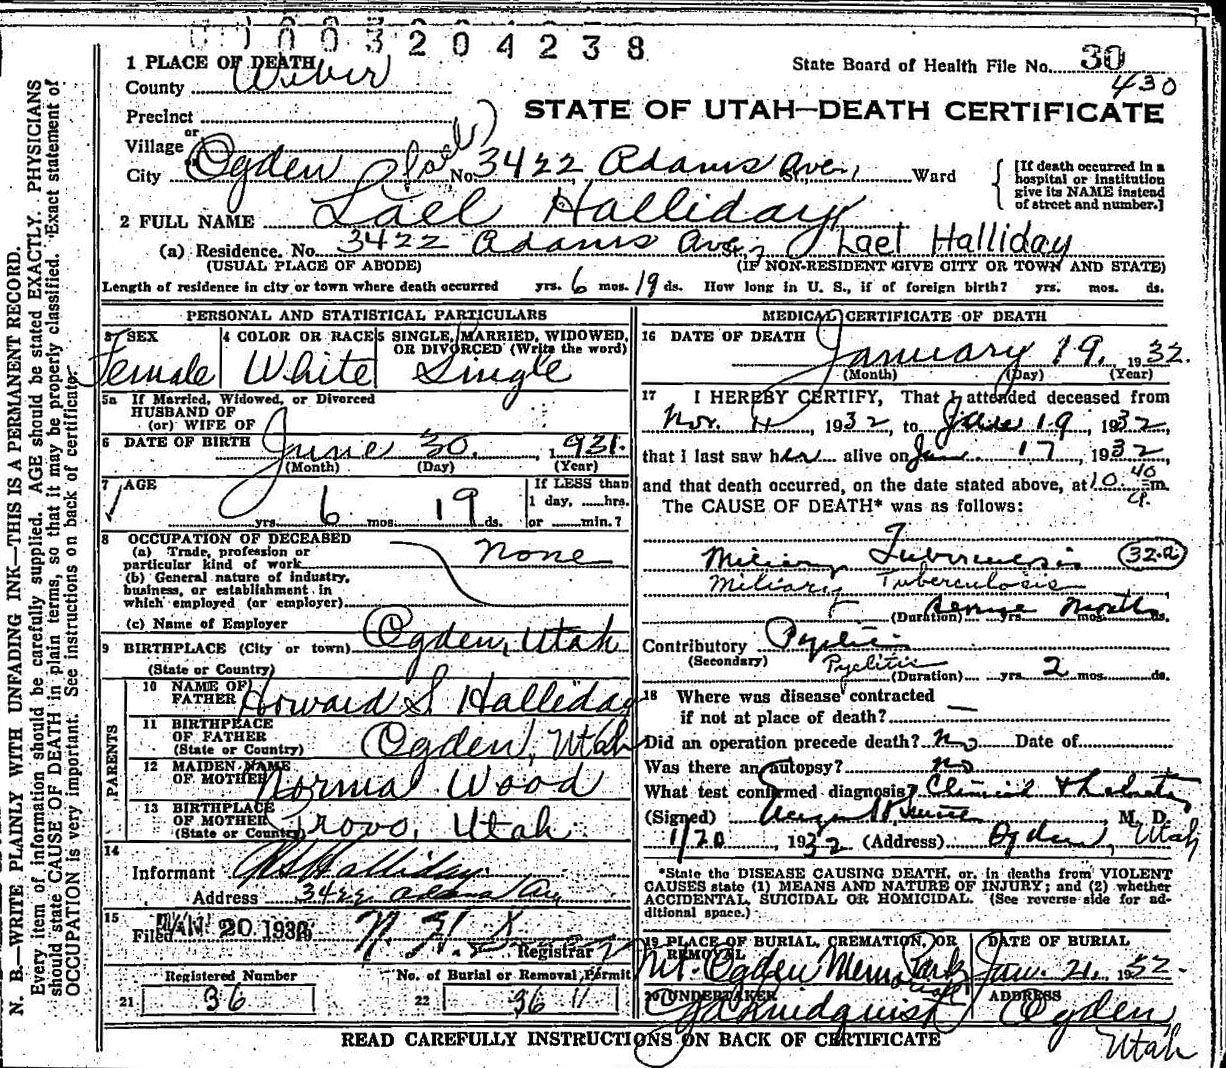 1003204238
1 PLACE OF DEATH
State Board of Health File No. 30
430
County Weber
STATE OF UTAH—DEATH CERTIFICATE
Precinct
or
Village
City Ogden (Lael) No. 3422 Adams Ave, St., Ward
[If death occurred in a hospital or institution give its NAME instead of street and number.]
2 FULL NAME Lael Halliday
(a) Residence. No. 3422 Adams Ave, St., Lael Halliday
(USUAL PLACE OF ABODE) (IF NON-RESIDENT GIVE CITY OR TOWN AND STATE)
Length of residence in city or town where death occurred yrs. 6 mos. 19 ds. How long in U. S., if of foreign birth? yrs. mos. ds.
PERSONAL AND STATISTICAL PARTICULARS
3 SEX 4 COLOR OR RACE 5 SINGLE, MARRIED, WIDOWED,
OR DIVORCED (Write the word)
Female White Single
5a If Married, Widowed, or Divorced
HUSBAND OF
(or) WIFE OF
6 DATE OF BIRTH June 30, 1931.
(Month) (Day) (Year)
7 AGE
If LESS than
1 day, ......hrs.
yrs. 6 mos. 19 ds. or ......min.?
8 OCCUPATION OF DECEASED
(a) Trade, profession or
particular kind of work none
(b) General nature of industry,
business, or establishment in
which employed (or employer)
(c) Name of Employer
9 BIRTHPLACE (City or town) Ogden, Utah
(State or Country)
PARENTS
10 NAME OF
FATHER Howard S Halliday
11 BIRTHPLACE
OF FATHER Ogden, Utah
(State or Country)
12 MAIDEN NAME
OF MOTHER Norma Wood
13 BIRTHPLACE
OF MOTHER Provo, Utah
(State or Country)
14
Informant H S Halliday
Address 3422 Adams Av
15
Filed JAN 20 1932
Registrar
Registered Number No. of Burial or Removal Permit
21 36 22 36
MEDICAL CERTIFICATE OF DEATH
16 DATE OF DEATH January 19, 1932.
(Month) (Day) (Year)
17 I HEREBY CERTIFY, That I attended deceased from
Nov. 4, 1932, to Jan 19, 1932,
that I last saw her alive on Jan. 17, 1932,
and that death occurred, on the date stated above, at 10 40 P. m.
The CAUSE OF DEATH* was as follows:
Miliary Tuberculosis 32-a
Miliary Tuberculosis
(Duration) yrs. Months mos. ds.
Contributory Pyelitis
(Secondary) Pyelitis (Duration) yrs. 2 mos. ds.
18 Where was disease contracted
if not at place of death? —
Did an operation precede death? no Date of
Was there an autopsy? no
What test confirmed diagnosis? Clinical & Laboratory
(Signed) M. D.
1/20, 1932 (Address) Ogden, Utah
*State the DISEASE CAUSING DEATH, or in deaths from VIOLENT
CAUSES state (1) MEANS AND NATURE OF INJURY; and (2) whether
ACCIDENTAL, SUICIDAL OR HOMICIDAL. (See reverse side for additional space.)
19 PLACE OF BURIAL, CREMATION, OR REMOVAL DATE OF BURIAL
Mt. Ogden Memorial Park Jan. 21, 1932.
20 UNDERTAKER ADDRESS
Lindquist Ogden, Utah
READ CAREFULLY INSTRUCTIONS ON BACK OF CERTIFICATE
N. B.—WRITE PLAINLY WITH UNFADING INK—THIS IS A PERMANENT RECORD.
Every item of information should be carefully supplied. AGE should be stated EXACTLY. PHYSICIANS
should state CAUSE OF DEATH in plain terms, so that it may be properly classified. Exact statement of
OCCUPATION is very important. See instructions on back of certificate.